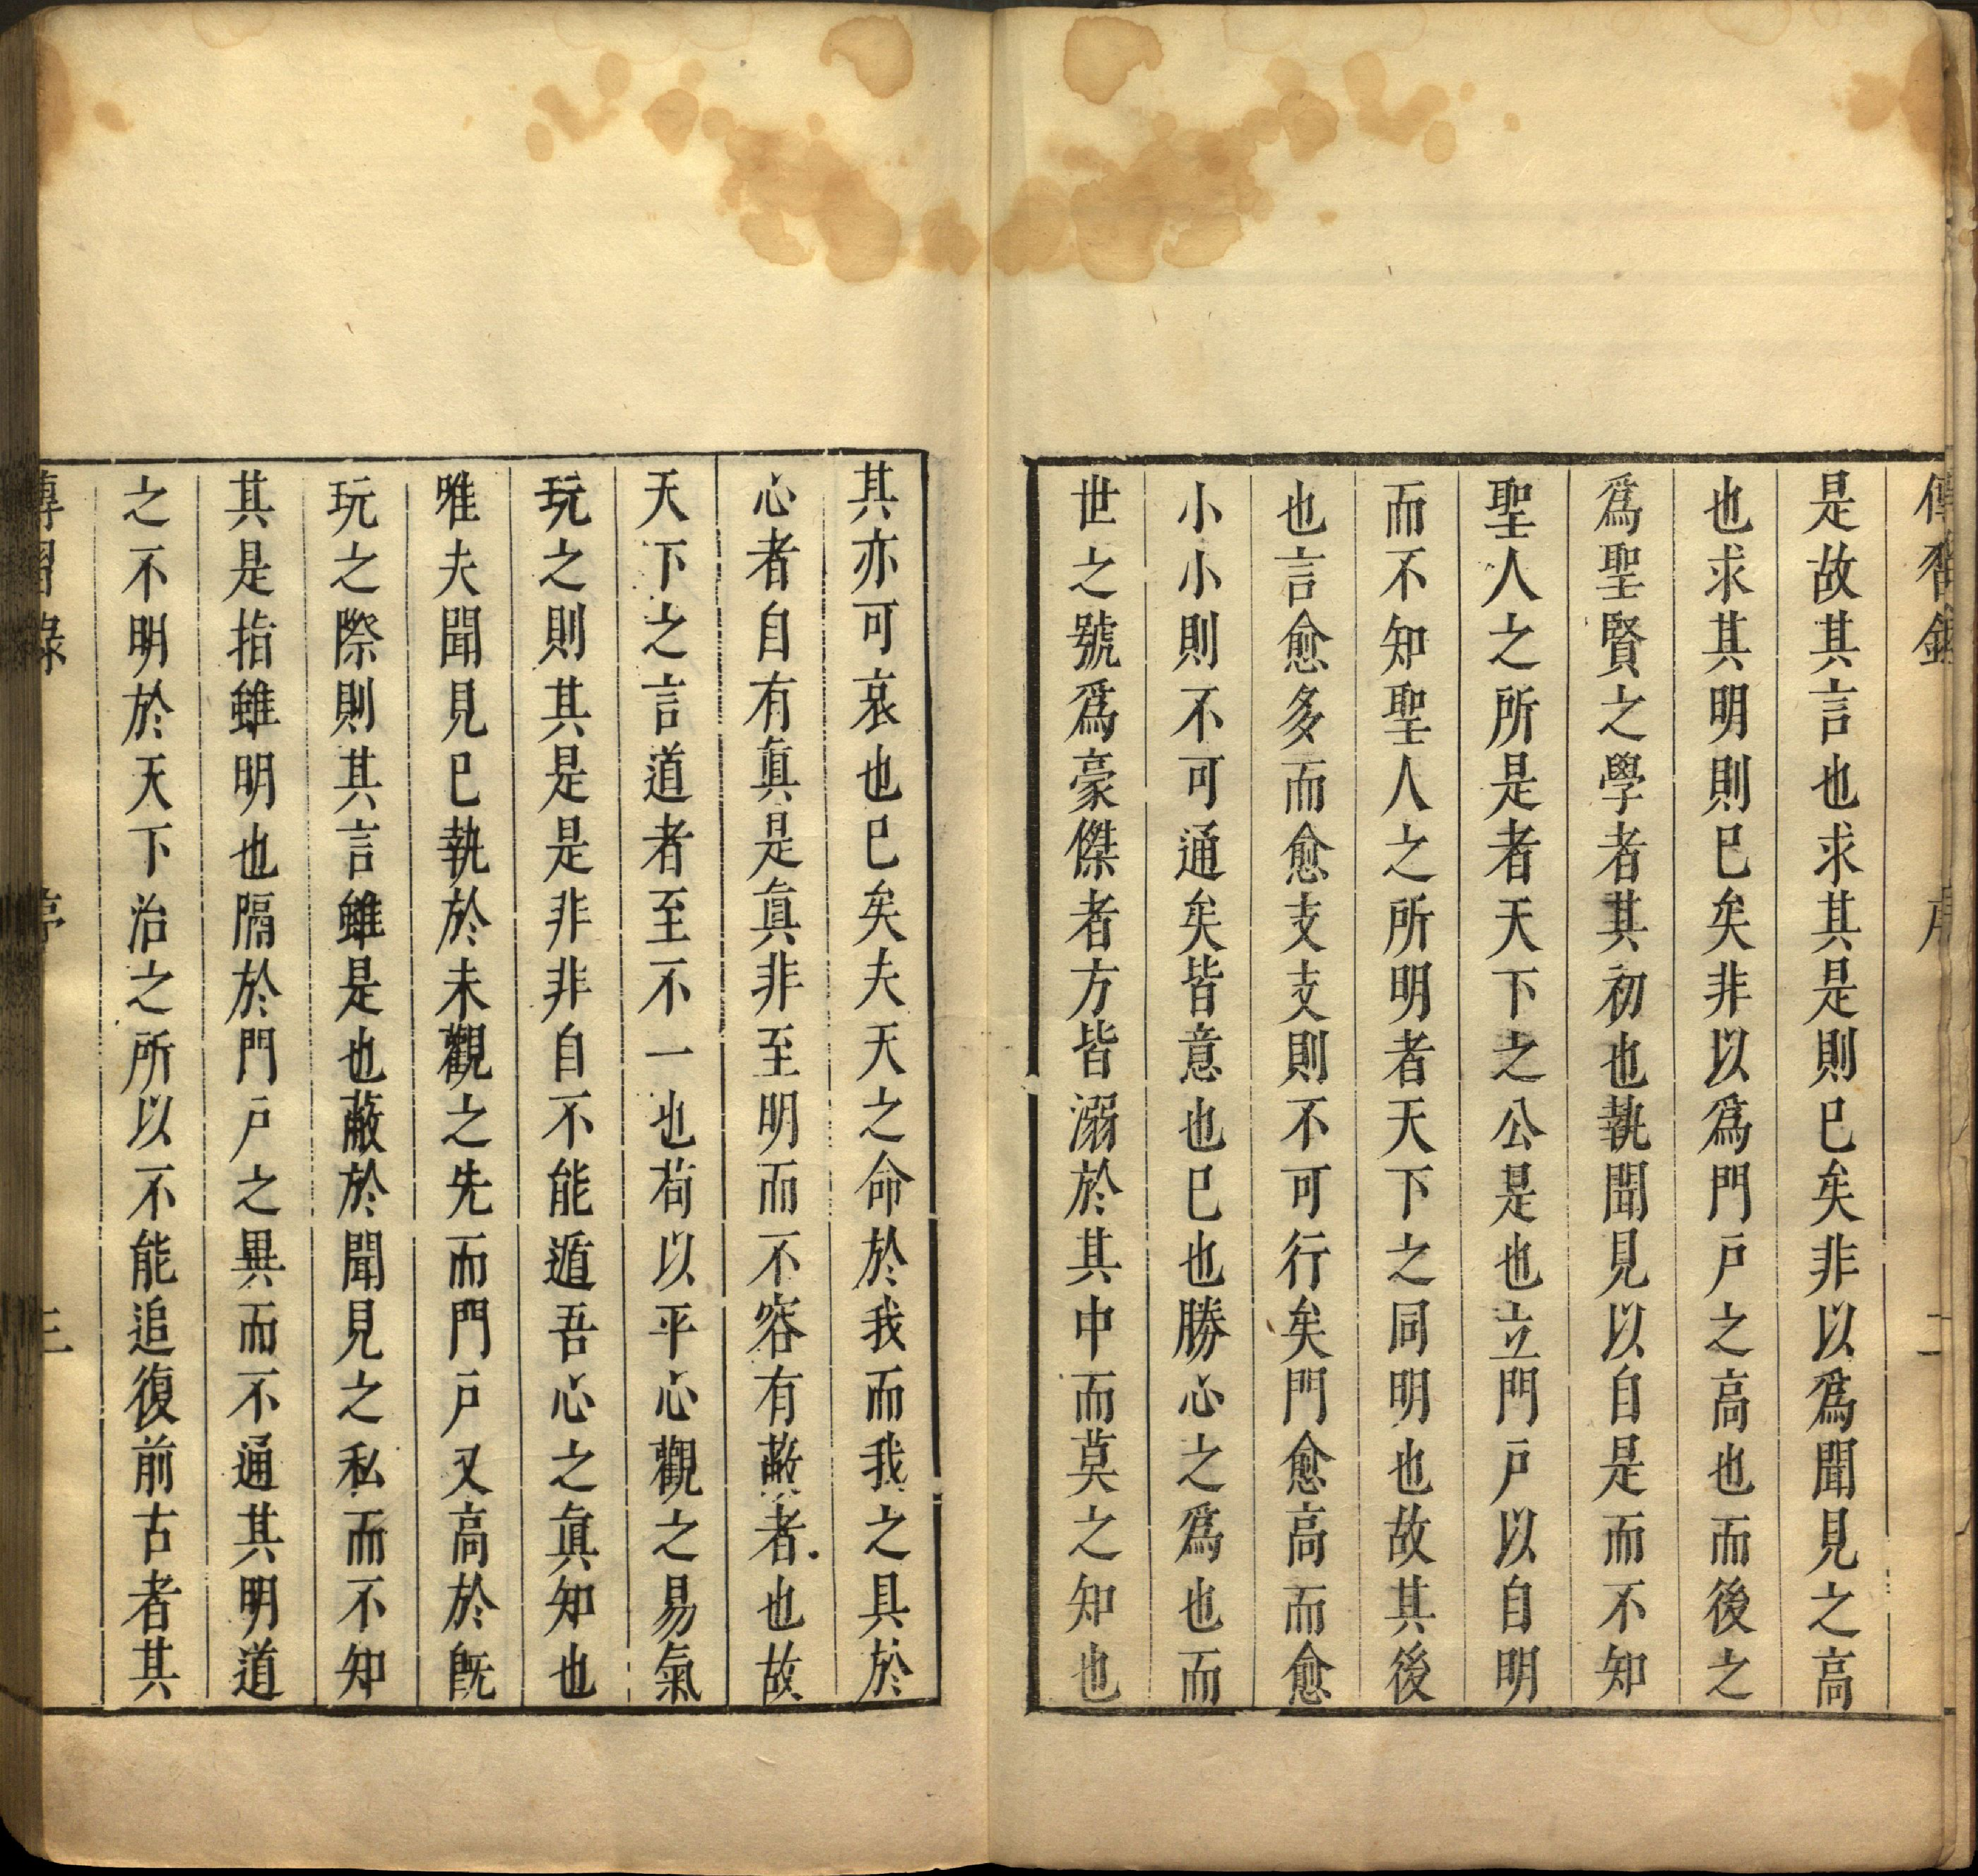 傳習錄 序 二
是故其言也求其是則已矣非以爲聞見之高
也求其明則已矣非以爲門戸之高也而後之
爲聖賢之學者其初也執聞見以自是而不知
聖人之所是者天下之公是也立門戸以自明
而不知聖人之所明者天下之同明也故其後
也言愈多而愈支支則不可行矣門愈高而愈
小小則不可通矣皆意也已也勝心之爲也而
世之號爲豪傑者方皆溺於其中而莫之知也
其亦可哀也已矣夫天之命於我而我之具於
心者自有眞是眞非至明而不容有蔽者也故
天下之言道者至不一也荀以平心觀之易氣
玩之則其是是非非自不能遁吾心之眞知也
唯夫聞見已執於未觀之先而門戸又高於旣
玩之際則其言雖是也蔽於聞見之私而不知
其是指雖明也隔於門戸之異而不通其明道
之不明於天下治之所以不能追復前古者其
傳習錄 序 三